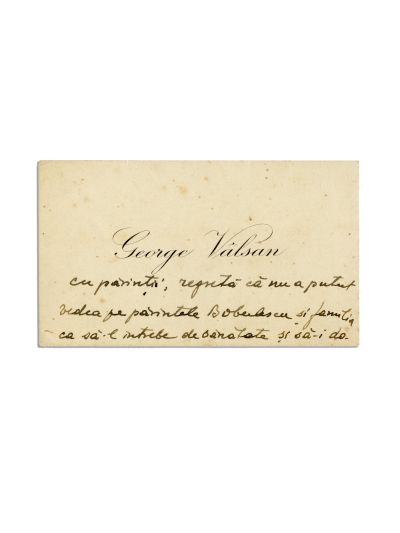 George Vâlsan
cu părinții, regretă că nu a putut
vedea pe părintele Bobulescu și familia
ca să-l întrebe de sănătate și să-i do-